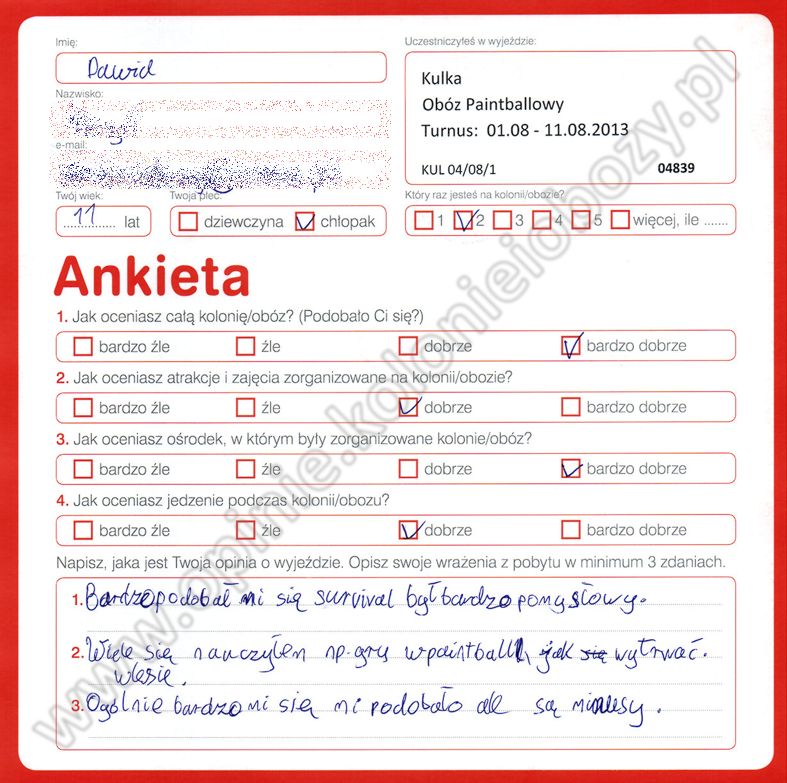 Imię:
Dawid
Uczestniczyłeś w wyjeździe:
Kulka
Obóz Paintballowy
Turnus: 01.08 - 11.08.2013
KUL 04/08/1 04839
Nazwisko:
e-mail:
Twój wiek: Twoja płeć: Który raz jesteś na kolonii/obozie?
11 lat dziewczyna chłopak 1 2 3 4 5 więcej, ile .......
Ankieta
1. Jak oceniasz całą kolonię/obóz? (Podobało Ci się?)
bardzo źle źle dobrze bardzo dobrze
2. Jak oceniasz atrakcje i zajęcia zorganizowane na kolonii/obozie?
bardzo źle źle dobrze bardzo dobrze
3. Jak oceniasz ośrodek, w którym były zorganizowane kolonie/obóz?
bardzo źle źle dobrze bardzo dobrze
4. Jak oceniasz jedzenie podczas kolonii/obozu?
bardzo źle źle dobrze bardzo dobrze
Napisz, jaka jest Twoja opinia o wyjeździe. Opisz swoje wrażenia z pobytu w minimum 3 zdaniach.
1. Bardzo podobał mi się survival był bardzo pomysłowy.
2. Wiele się nauczyłem np. gry w paintball, jak się wytrwać.
w lesie.
3. Ogólnie bardzo mi się mi podobało ale są minusy.
www.opinie.kolonieiobozy.pl